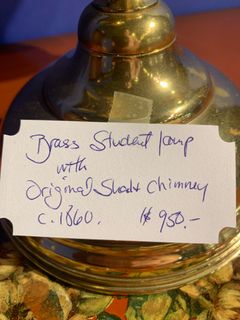 Brass Student lamp
with
Original Shade Chimney
c. 1860. 950.-